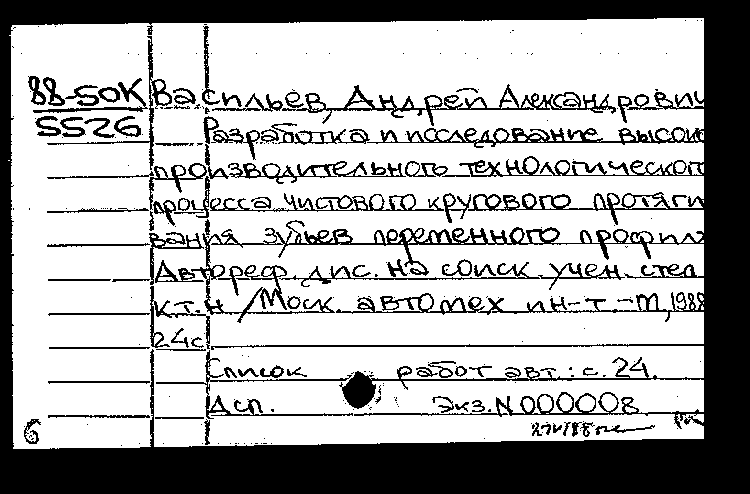 88-50К Васильев, Андрей Александрович
5526 Разработка и исследование высоко
производительного технологического
процесса чистового кругового протяги
вания зубьев переменного профиля
Автореф. дис. на соиск. учен. степ
к.т.н /Моск. автомех ин-т.-М, 1988
24с
Список работ авт.: с. 24.
Дсп. Экз. N 000008
6